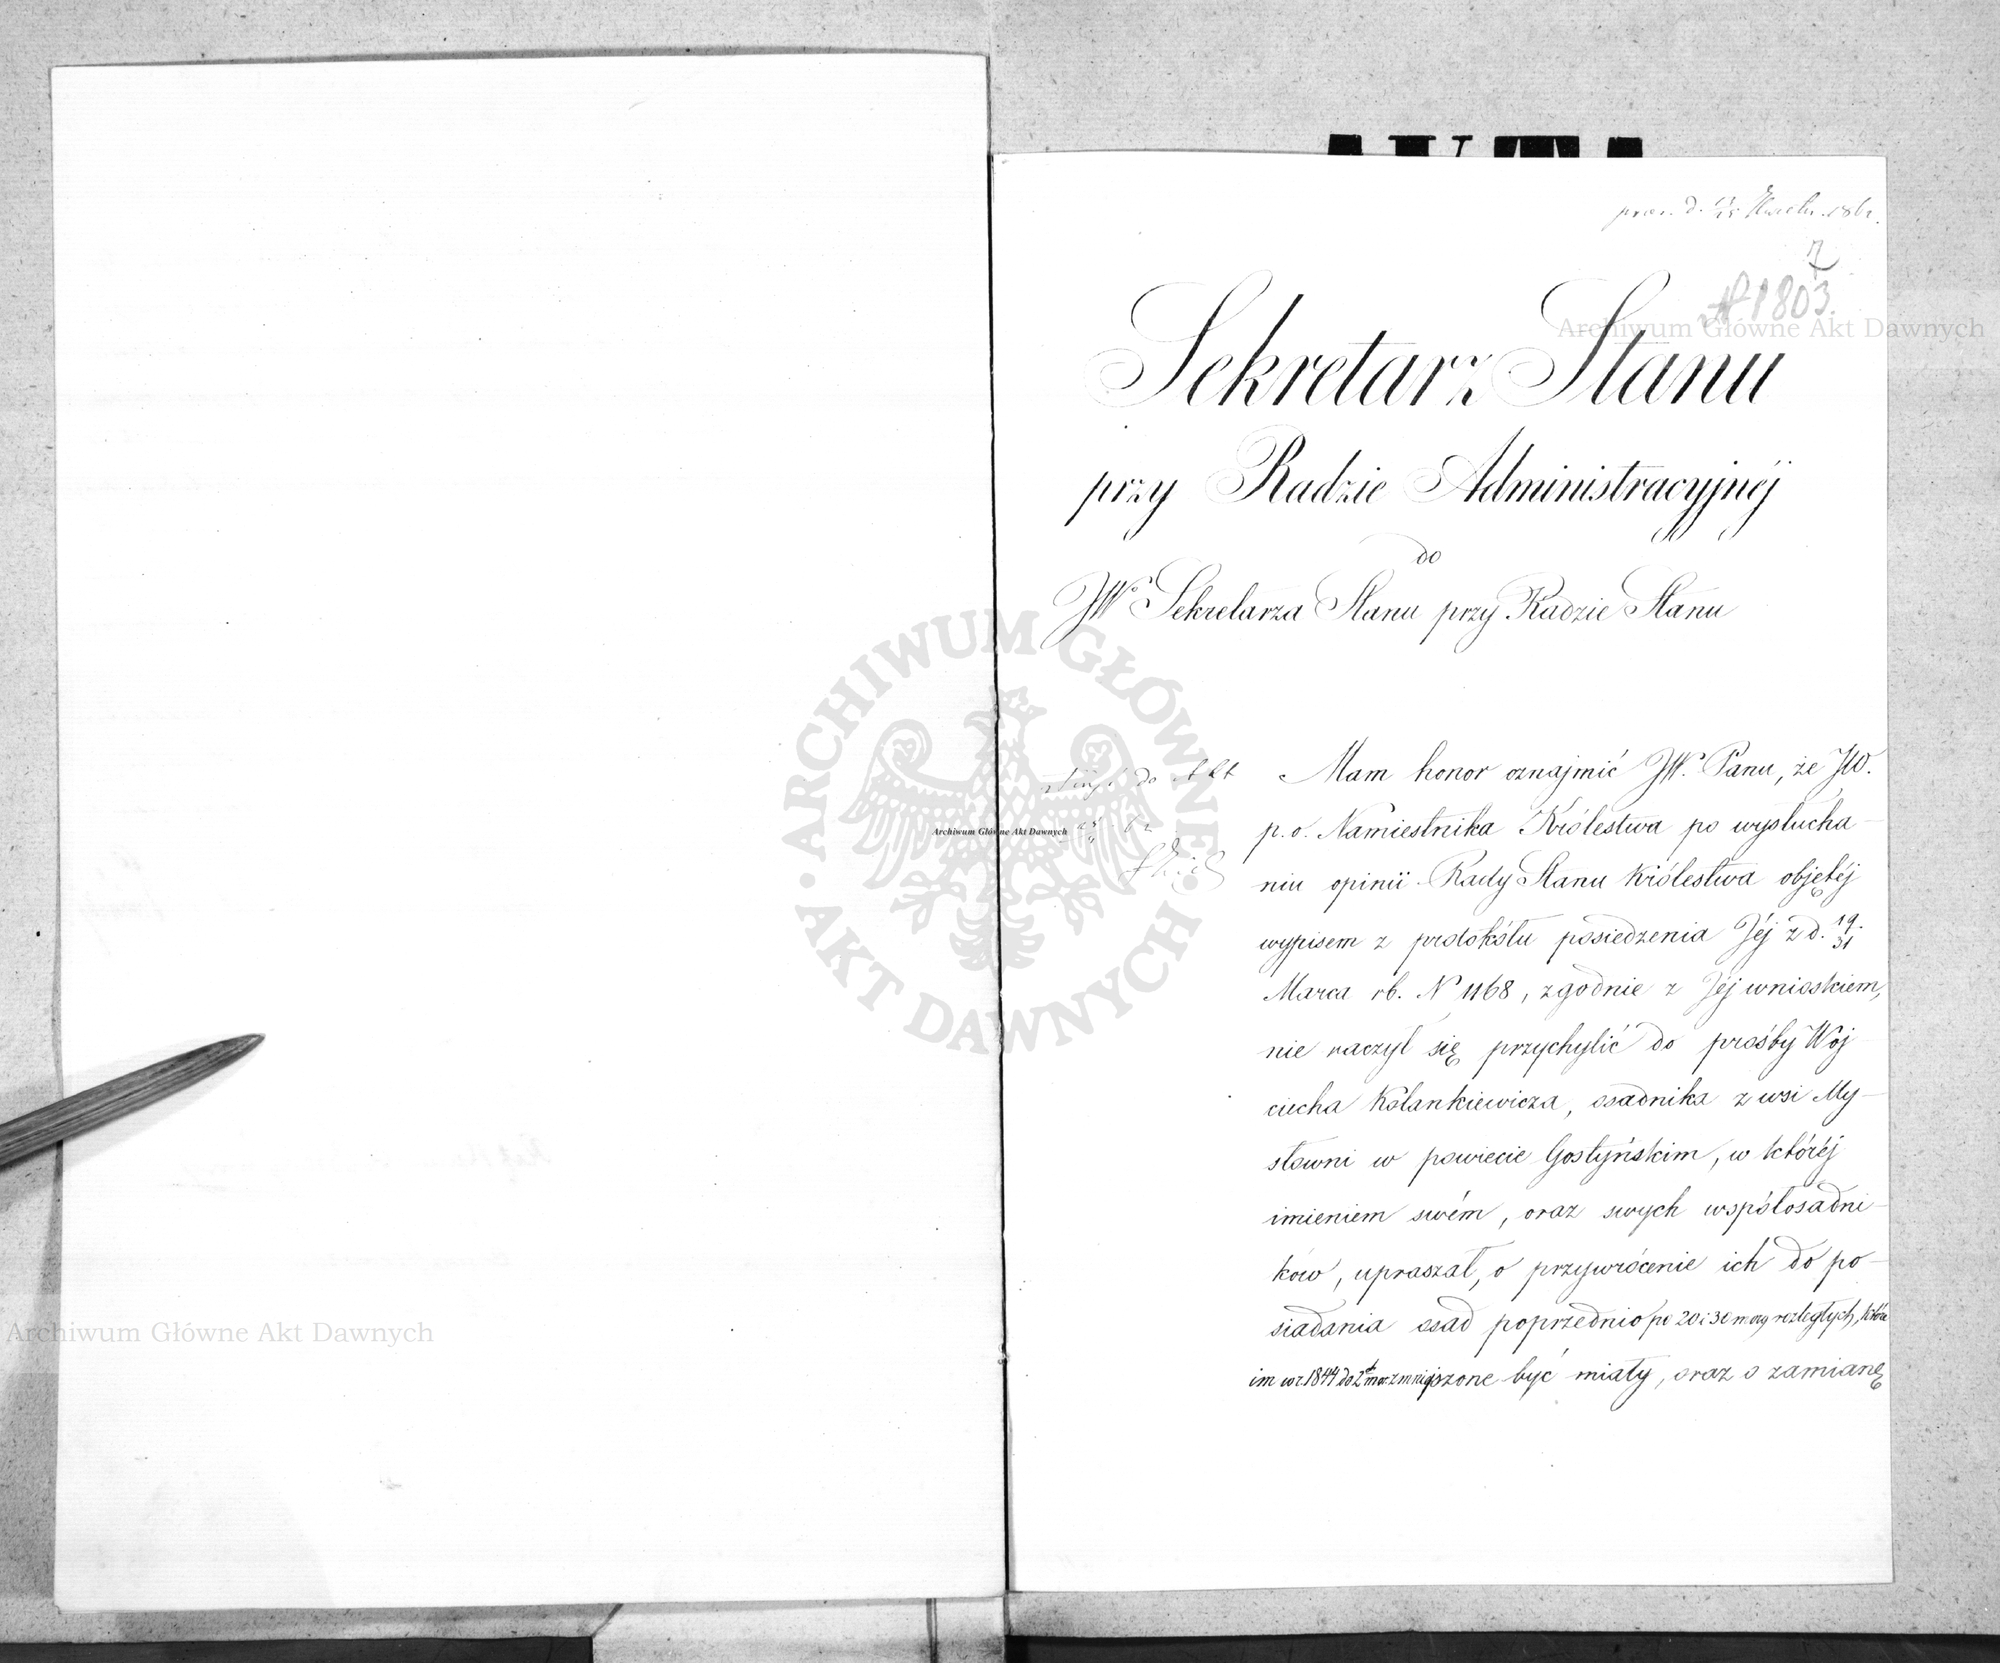 7
№ 1803.
Sekretarz Stanu
przy Radzie Administracyjnéj
do
JWo Sekretarza Stanu przy Radzie Stanu
do Akt
Mam honor oznajmić JW. Panu, że JW.
p. o. Namiestnika Królestwa po wysłucha-
niu opinii Rady Stanu Królestwa objętéj
wypisem z protokółu posiedzenia Jéj z d. 19/31
Marca rb. N 1168, zgodnie z Jéj wnioskiem,
nie raczył się przychylić do prośby Woj
ciecha Kolankiewicza, osadnika z wsi My-
słowni w powiecie Gostyńskim, w któréj
imieniem swém, oraz swych współosadni-
ków, upraszał, o przywrócenie ich do po-
siadania osad poprzednio po 20 i 30 morg rozległych, które
im w r 1844 do mor. zmniejszone być miały, oraz o zamianę
ARCHIWUM GŁÓWNE
AKT DAWNYCH
Archiwum Główne Akt Dawnych
Archiwum Główne Akt Dawnych
Archiwum Główne Akt Dawnych